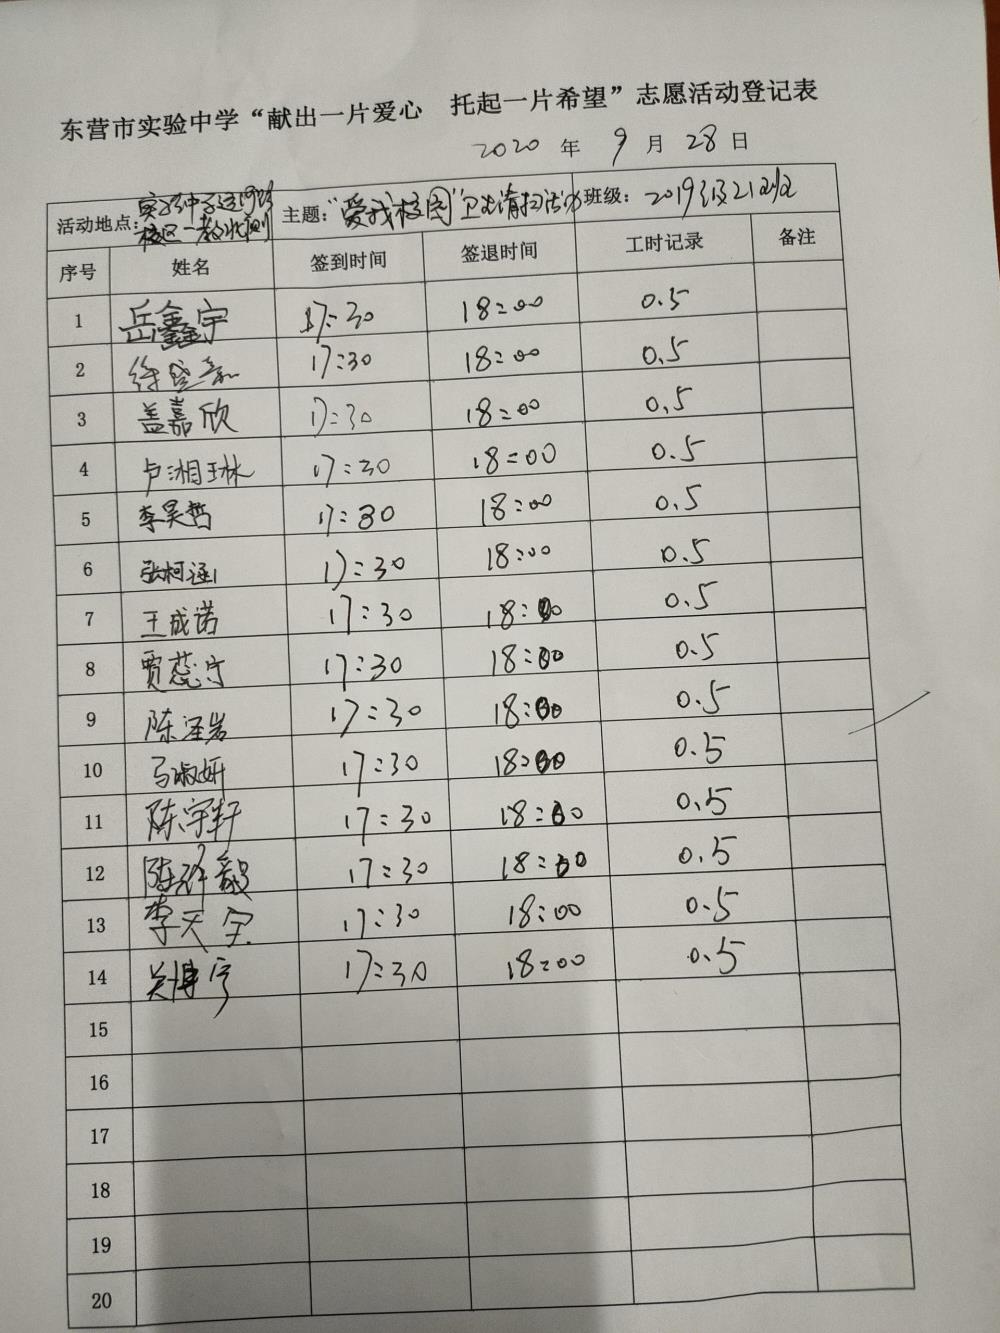 东营市实验中学“献出一片爱心 托起一片希望”志愿活动登记表
2020 年 9 月 28 日
活动地点: 实验中学运河路校区一教北侧 主题: “爱我校园”卫生清扫活动 班级: 2019级21班
序号 姓名 签到时间 签退时间 工时记录 备注
1 岳鑫宇 17:30 18:00 0.5
2 徐 17:30 18:00 0.5
3 盖嘉欣 17:30 18:00 0.5
4 卢湘琳 17:30 18:00 0.5
5 李昊哲 17:30 18:00 0.5
6 张柯涵 17:30 18:00 0.5
7 王成诺 17:30 18:00 0.5
8 贾蕊宁 17:30 18:00 0.5
9 陈泽岩 17:30 18:00 0.5
10 马淑妍 17:30 18:00 0.5
11 陈宇轩 17:30 18:00 0.5
12 陈 毅 17:30 18:00 0.5
13 李天宝 17:30 18:00 0.5
14 关博宇 17:30 18:00 0.5
15
16
17
18
19
20